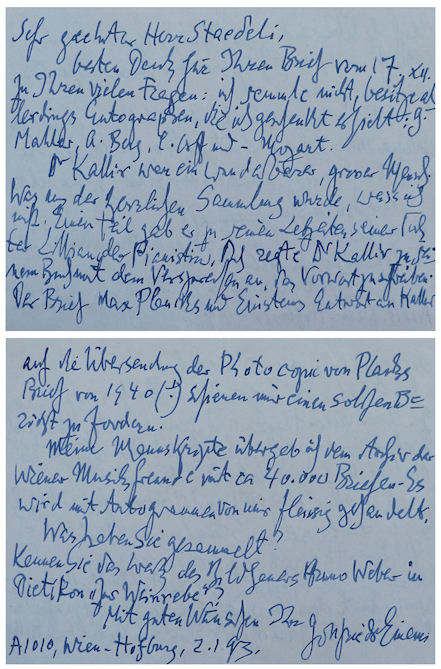 Sehr geehrter Herr Staedeli,
besten Dank für Ihren Brief vom 17. XII.
Zu Ihren vielen Fragen: ich sammle nicht, besitze al
lerdings Autographen, die ich geschenkt erhielt: G.
Mahler, A. Berg, C. Orff und - Mozart.
Dr Kallir war ein wunderbarer, grosser Mensch.
Was aus der herrlichen Sammlung wurde, weiss ich
nicht, einen Teil gab er zu seinen Lebzeiten seiner Toch
ter Lillian, der Pianistin. Ich regte Dr Kallir zu sei
nem Buch mit dem Versprechen an, das Vorwort zu schreiben.
Der Brief Max Plancks und Einsteins Antwort an Kallir
auf die Übersendung der Photocopie von Plancks
Brief von 1940 (!) schienen mir einen solchen Be=
richt zu fordern.
Meine Manuskripte übergab ich dem Archiv der
Wiener Musikfreunde mit ca 40.000 Briefen. Es
wird mit Autogrammen von mir fleissig gehandelt.
Was haben Sie gesammelt?
Kennen Sie das Werk des Hanno Weber in
Dietikon "Zur Weinrebe"?
Mit guten Wünschen Ihr Gottfried von Einem
A1010, Wien-Hofburg, 2.1.93.